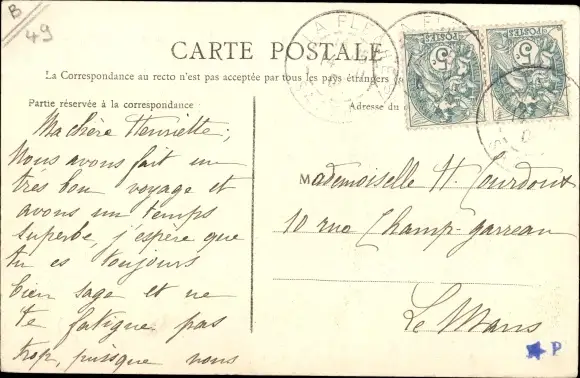 B
49
CARTE POSTALE
La Correspondance au recto n'est pas acceptée par tous les pays étrangers
Partie réservée à la correspondance
Adresse du
Ma chère Henriette,
Nous avons fait un
très bon voyage et
avons un temps
superbe, j'espère que
tu es toujours
bien sage et ne
te fatigue pas
trop, puisque nous
Mademoiselle H. Courdoux
10 rue Champ-garreau
Le Mans
LA FLECHE
POSTES
5c
POSTES
5c
P